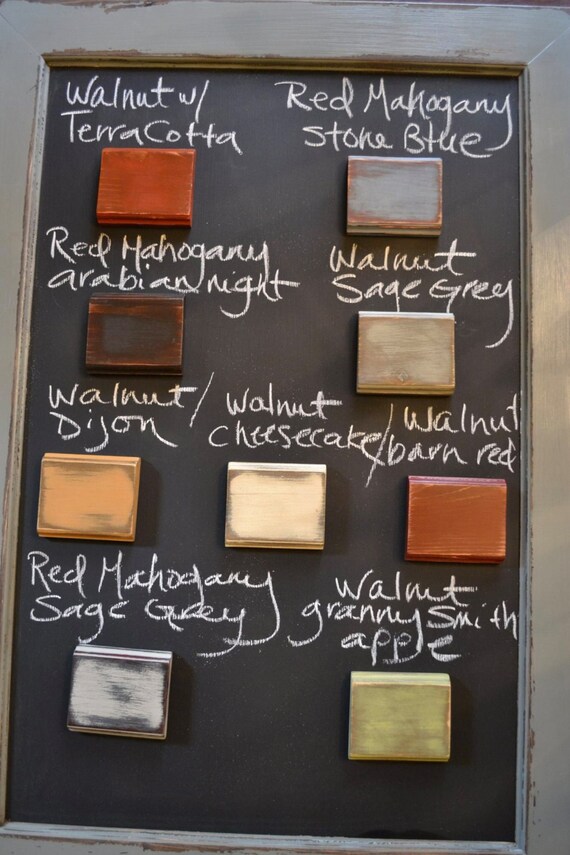 Walnut w/
TerraCotta
Red Mahogany
Stone Blue
Red Mahogany
arabian night
Walnut
Sage Grey
Walnut/
Dijon
Walnut
Cheesecake/
Walnut
barn red
Red Mahogany
Sage Grey
Walnut
granny Smith
apple